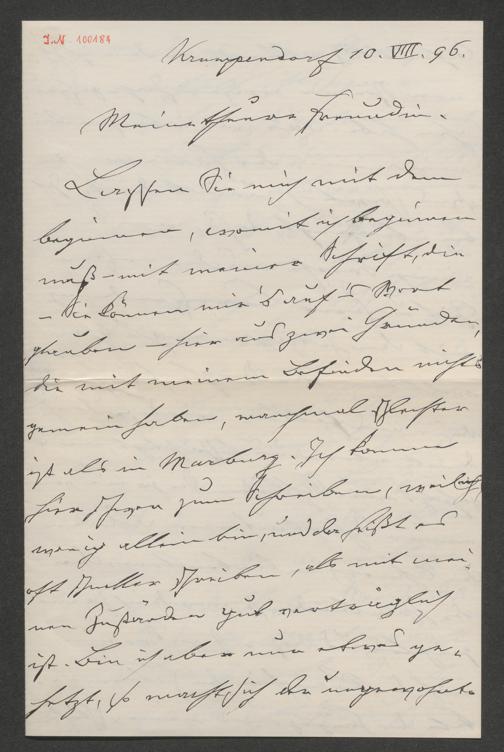 J.N. 100184
Krumpendorf 10. VIII. 96.
Meine theure Freundin.
Lassen Sie mich mit dem
beginnen, womit ich beginnen
muß – mit meiner Schrift, die
– Sie können mir's auf's Wort
glauben – hier aus zwei Gründen,
die mit meinem Befinden nichts
gemein haben, manchmal schlechter
ist als in Marburg. Ich komme
hier schwer zum Schreiben, weil ich
wenig allein bin, und da heißt es
oft schneller schreiben, als mit mei-
nen Zuständen gut verträglich
ist. Bin ich aber nun etwas ge-
hetzt, so macht sich der ungewohnte